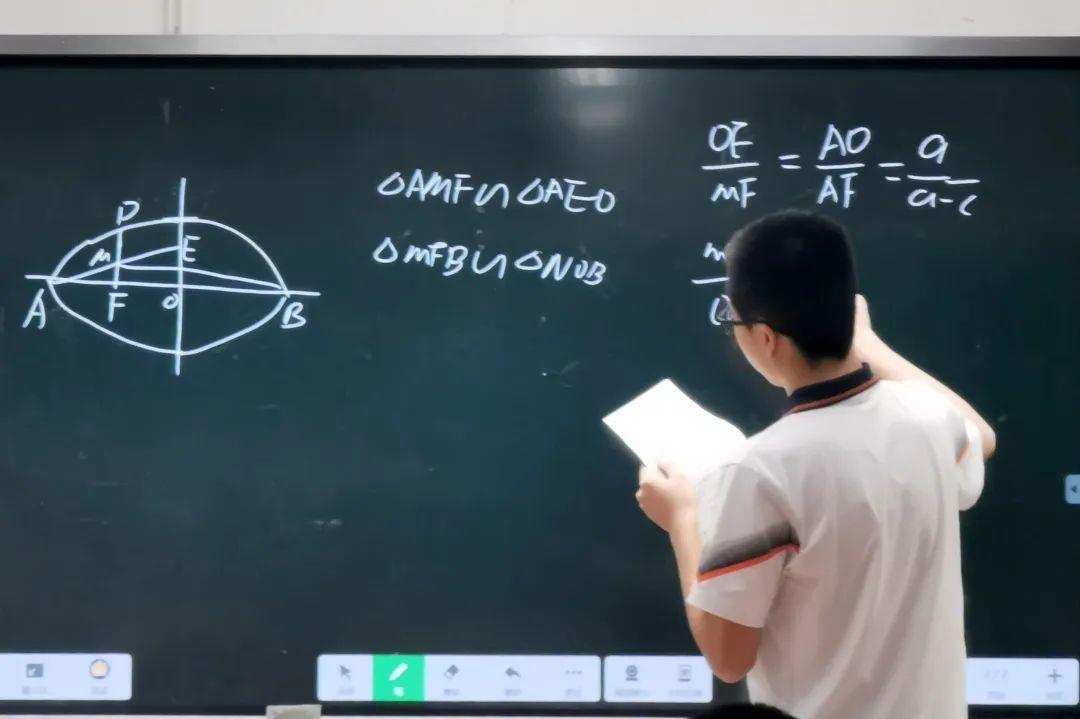 P
M
E
A
F
O
B
△AMF∽△AEO
△MFB∽△NOB
OE/MF = AO/AF = a/a-c
m